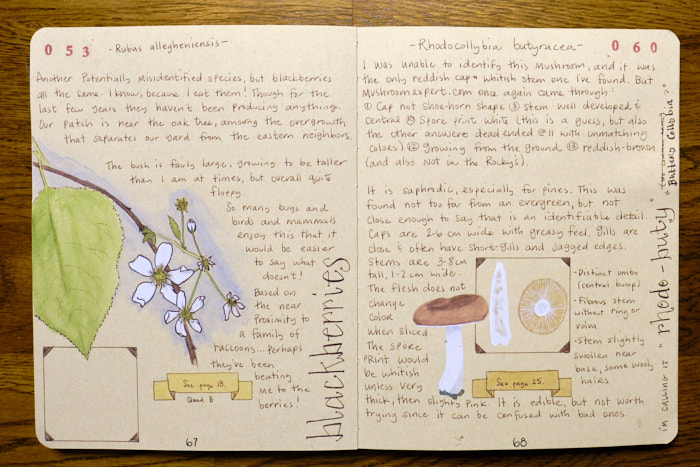 053
-Rubus allegheniensis-
Another Potentially Misidentified species, but blackberries
all the same. I know, because I eat them! Though for the
last few years they haven't been producing anything.
Our patch is near the oak tree, among the overgrowth
that separates our yard from the eastern neighbors.
The bush is fairly large, growing to be taller
than I am at times, but overall quite
floppy.
So many bugs and
birds and mammals
enjoy this that it
would be easier
to say what
doesn't!
Based on
the near
Proximity to
a family of
raccoons... Perhaps
they've been
beating
me to the
berries!
blackberries
See page 18.
Quad B
67
-Rhodocollybia butyracea-
060
I was unable to identify this Mushroom, and it was
the only reddish cap & whitish stem one I've found. But
Mushroomexpert.com once again came through:
① Cap not shoe-horn shape ③ Stem well developed &
central ⑩ Spore print white (this is a guess, but also
the other answers dead ended @ 11 with unmatching
colors) ⑫ Growing from the ground ⑬ reddish-brown
(and also Not in the Rocky's).
It is saphrodic, especially for pines. This was
found not too far from an evergreen, but not
close enough to say that is an identifiable detail.
Caps are 2-6 cm wide with greasy feel, gills are
close & often have short-gills and jagged edges.
Stems are 3-8cm
tall, 1-2 cm wide.
The flesh does not
change
color
when sliced.
The spore
Print would
be whitish
unless very
thick, then slightly Pink. It is edible, but not worth
trying since it can be confused with bad ones.
-Distinct umbo
(central bump)
-Fibrous stem
without ring or
volva
-Stem slightly
swollen near
base, some wooly
hairs
See page 25.
im calling it "rhodo-buty"
"Buttery Collybia?"
68